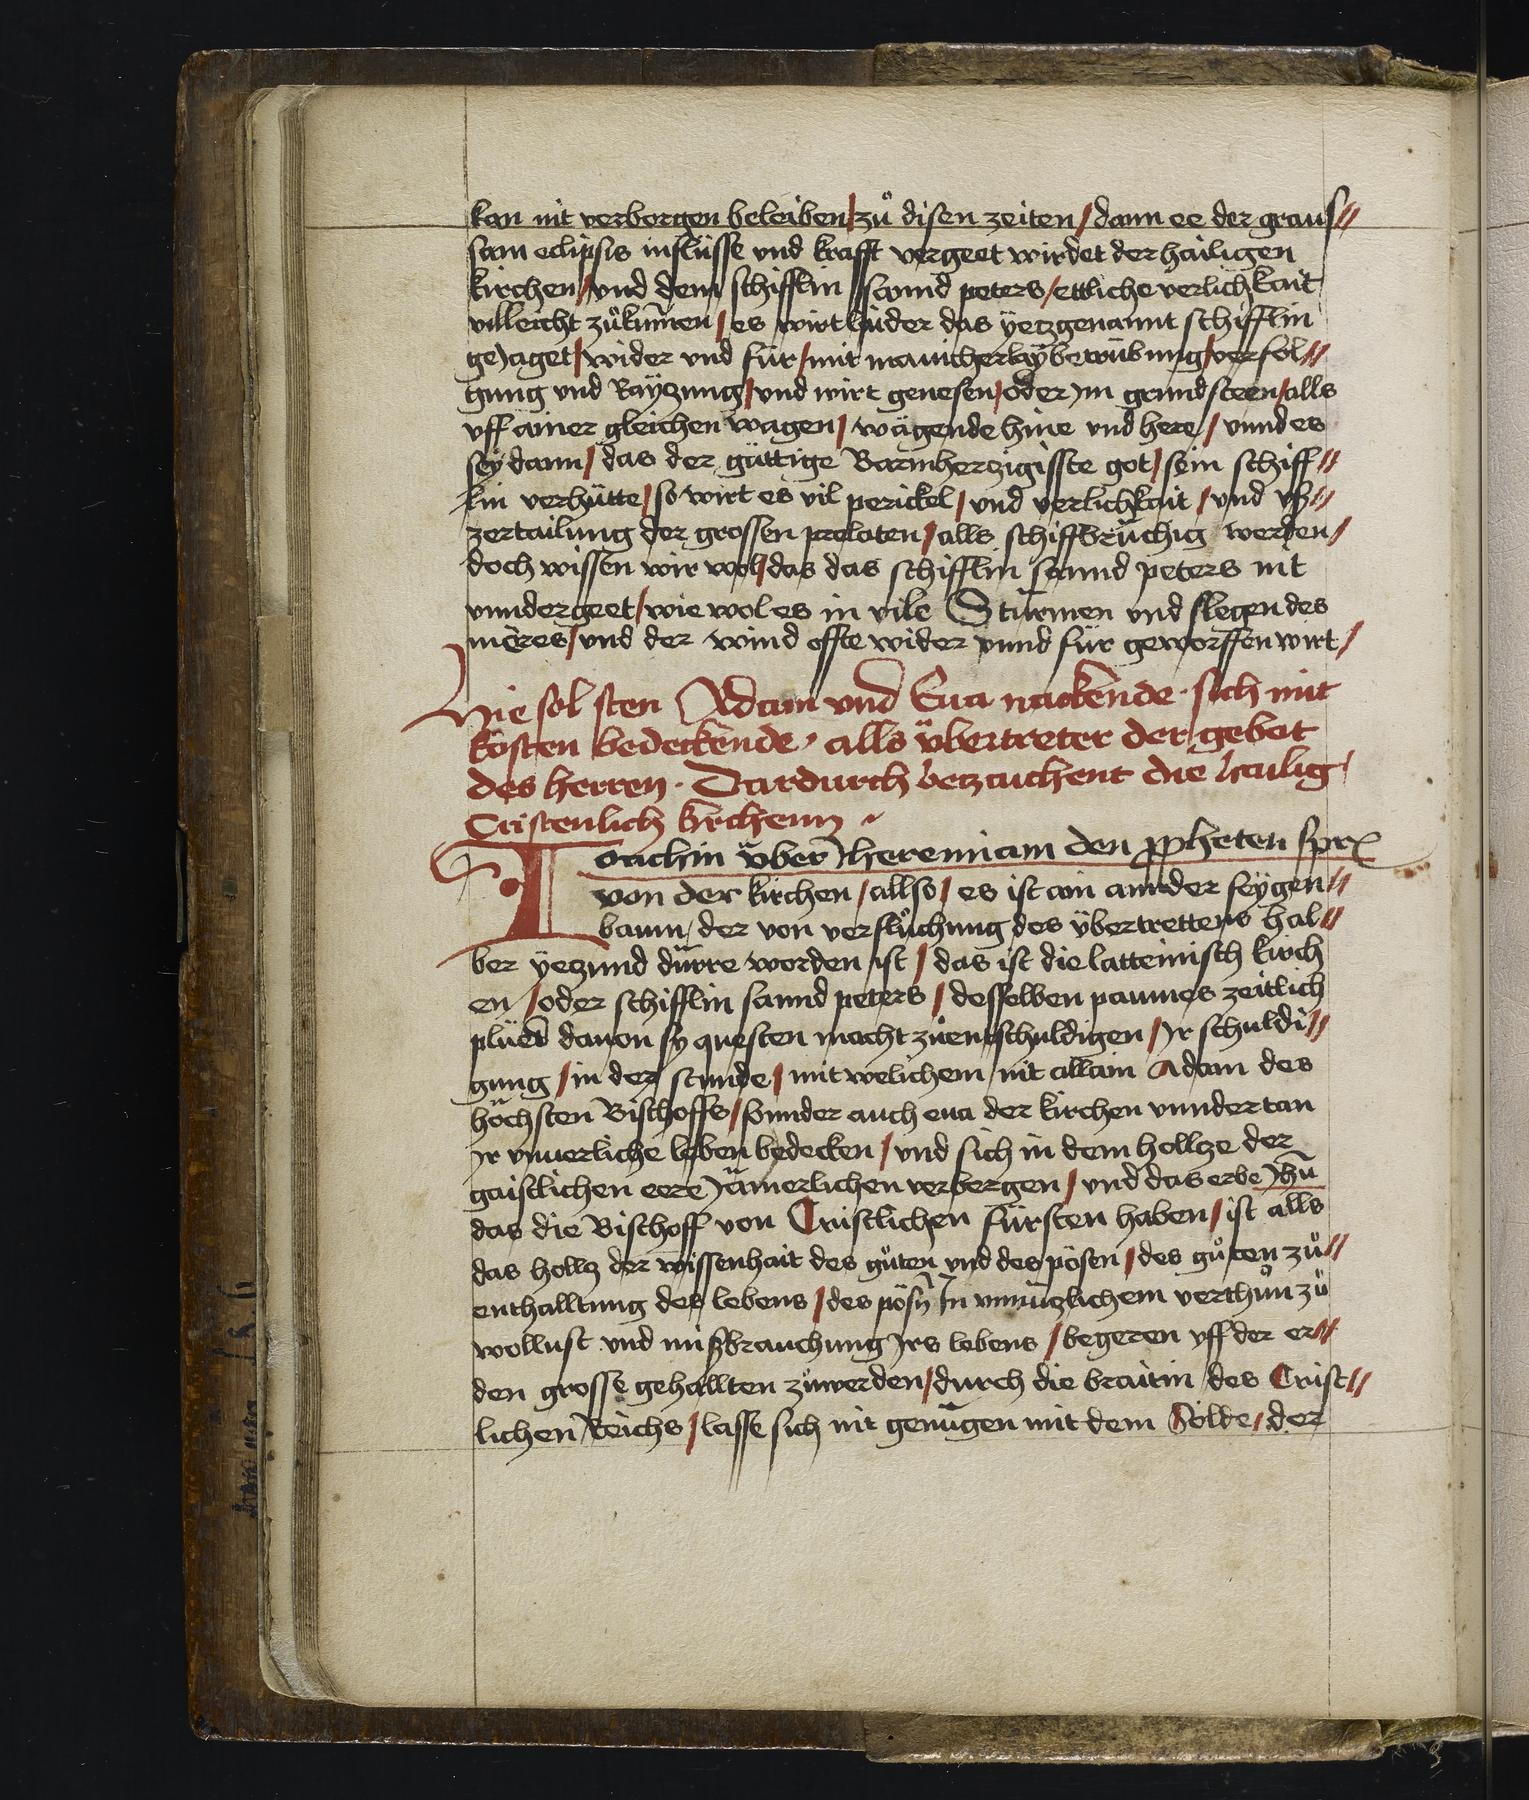 kan nit verborgen beleiben / zů disen zeiten / dann ee der graus //
sam eclipsis inflüsse vnd krafft vergeet wirdet der hailigen
kirchen / vnd dem schifflin sannd peters / ettliche verlichkait
villeicht zůkumen / es wirt hinder das yetzgenannt schifflin
gejaget / wider vnd für / mit manicherlay betrübnung / verfol //
gung vnd Raytzung / vnd wirt genesen / oder jm grund steen / alls
vff ainer gleichen wagen / wägende hine vnd here / vnnd es
sey dann / das der güttige Barmhertzigiste got / sein schiff //
lin verhütte / so wirt es vil perickel / vnd verlichkait / vnd vß //
zertailung der grossen prelaten / alls schiffbrüchig werden /
doch wissen wir wol / das das schifflin sannd peters nit
vnndergeet / wie wol es in vile Stürmen vnd slegen des
möres / vnd der wind offte wider vnnd für geworffen wirt /
Hie sol sten Adam vnd Eua nackende · sich mit
kosten bedeckende · alls übertreter der gebot
des herren · Dardurch betzaichent die hailig
Cristenlich kirchenn
Ioachin über Jheremiam den ppheten spr
von der kirchen / allso / es ist ain annder feygen //
baum / der von verflůchung des übertrettens hal //
ber yetzund dürre worden ist / das ist die latteinisch kirch
en / oder schifflin sannd peters / desselben paumes zeitlich
plüet dauon sy questen macht zůentschuldigen / Jr schuldi //
gung / in der stunde / mit welichem nit allain Adam des
höchsten Bischoffs / sunder auch eua der kirchen vnndertan
Jr vnuerliche leben bedecken / vnd sich in dem holltze der
gaistlichen eere jämerlichen verbergen / vnd das erbe Jhū
das die Bischoff von Cristlichen fürsten haben / ist alls
das holltz der wissenhait des gůten vnd des pösen / des gůten zů //
enthalltung des lebens / des pösn̄ In vnnützlichem verthůn zů
wollust vnd mißbrauchung Jrs lebens / begeren vff der er //
den grosse gehallten zůwerden / durch die braitin des Crist //
lichen Reichs / lasse sich nit genügen mit dem Solde / der